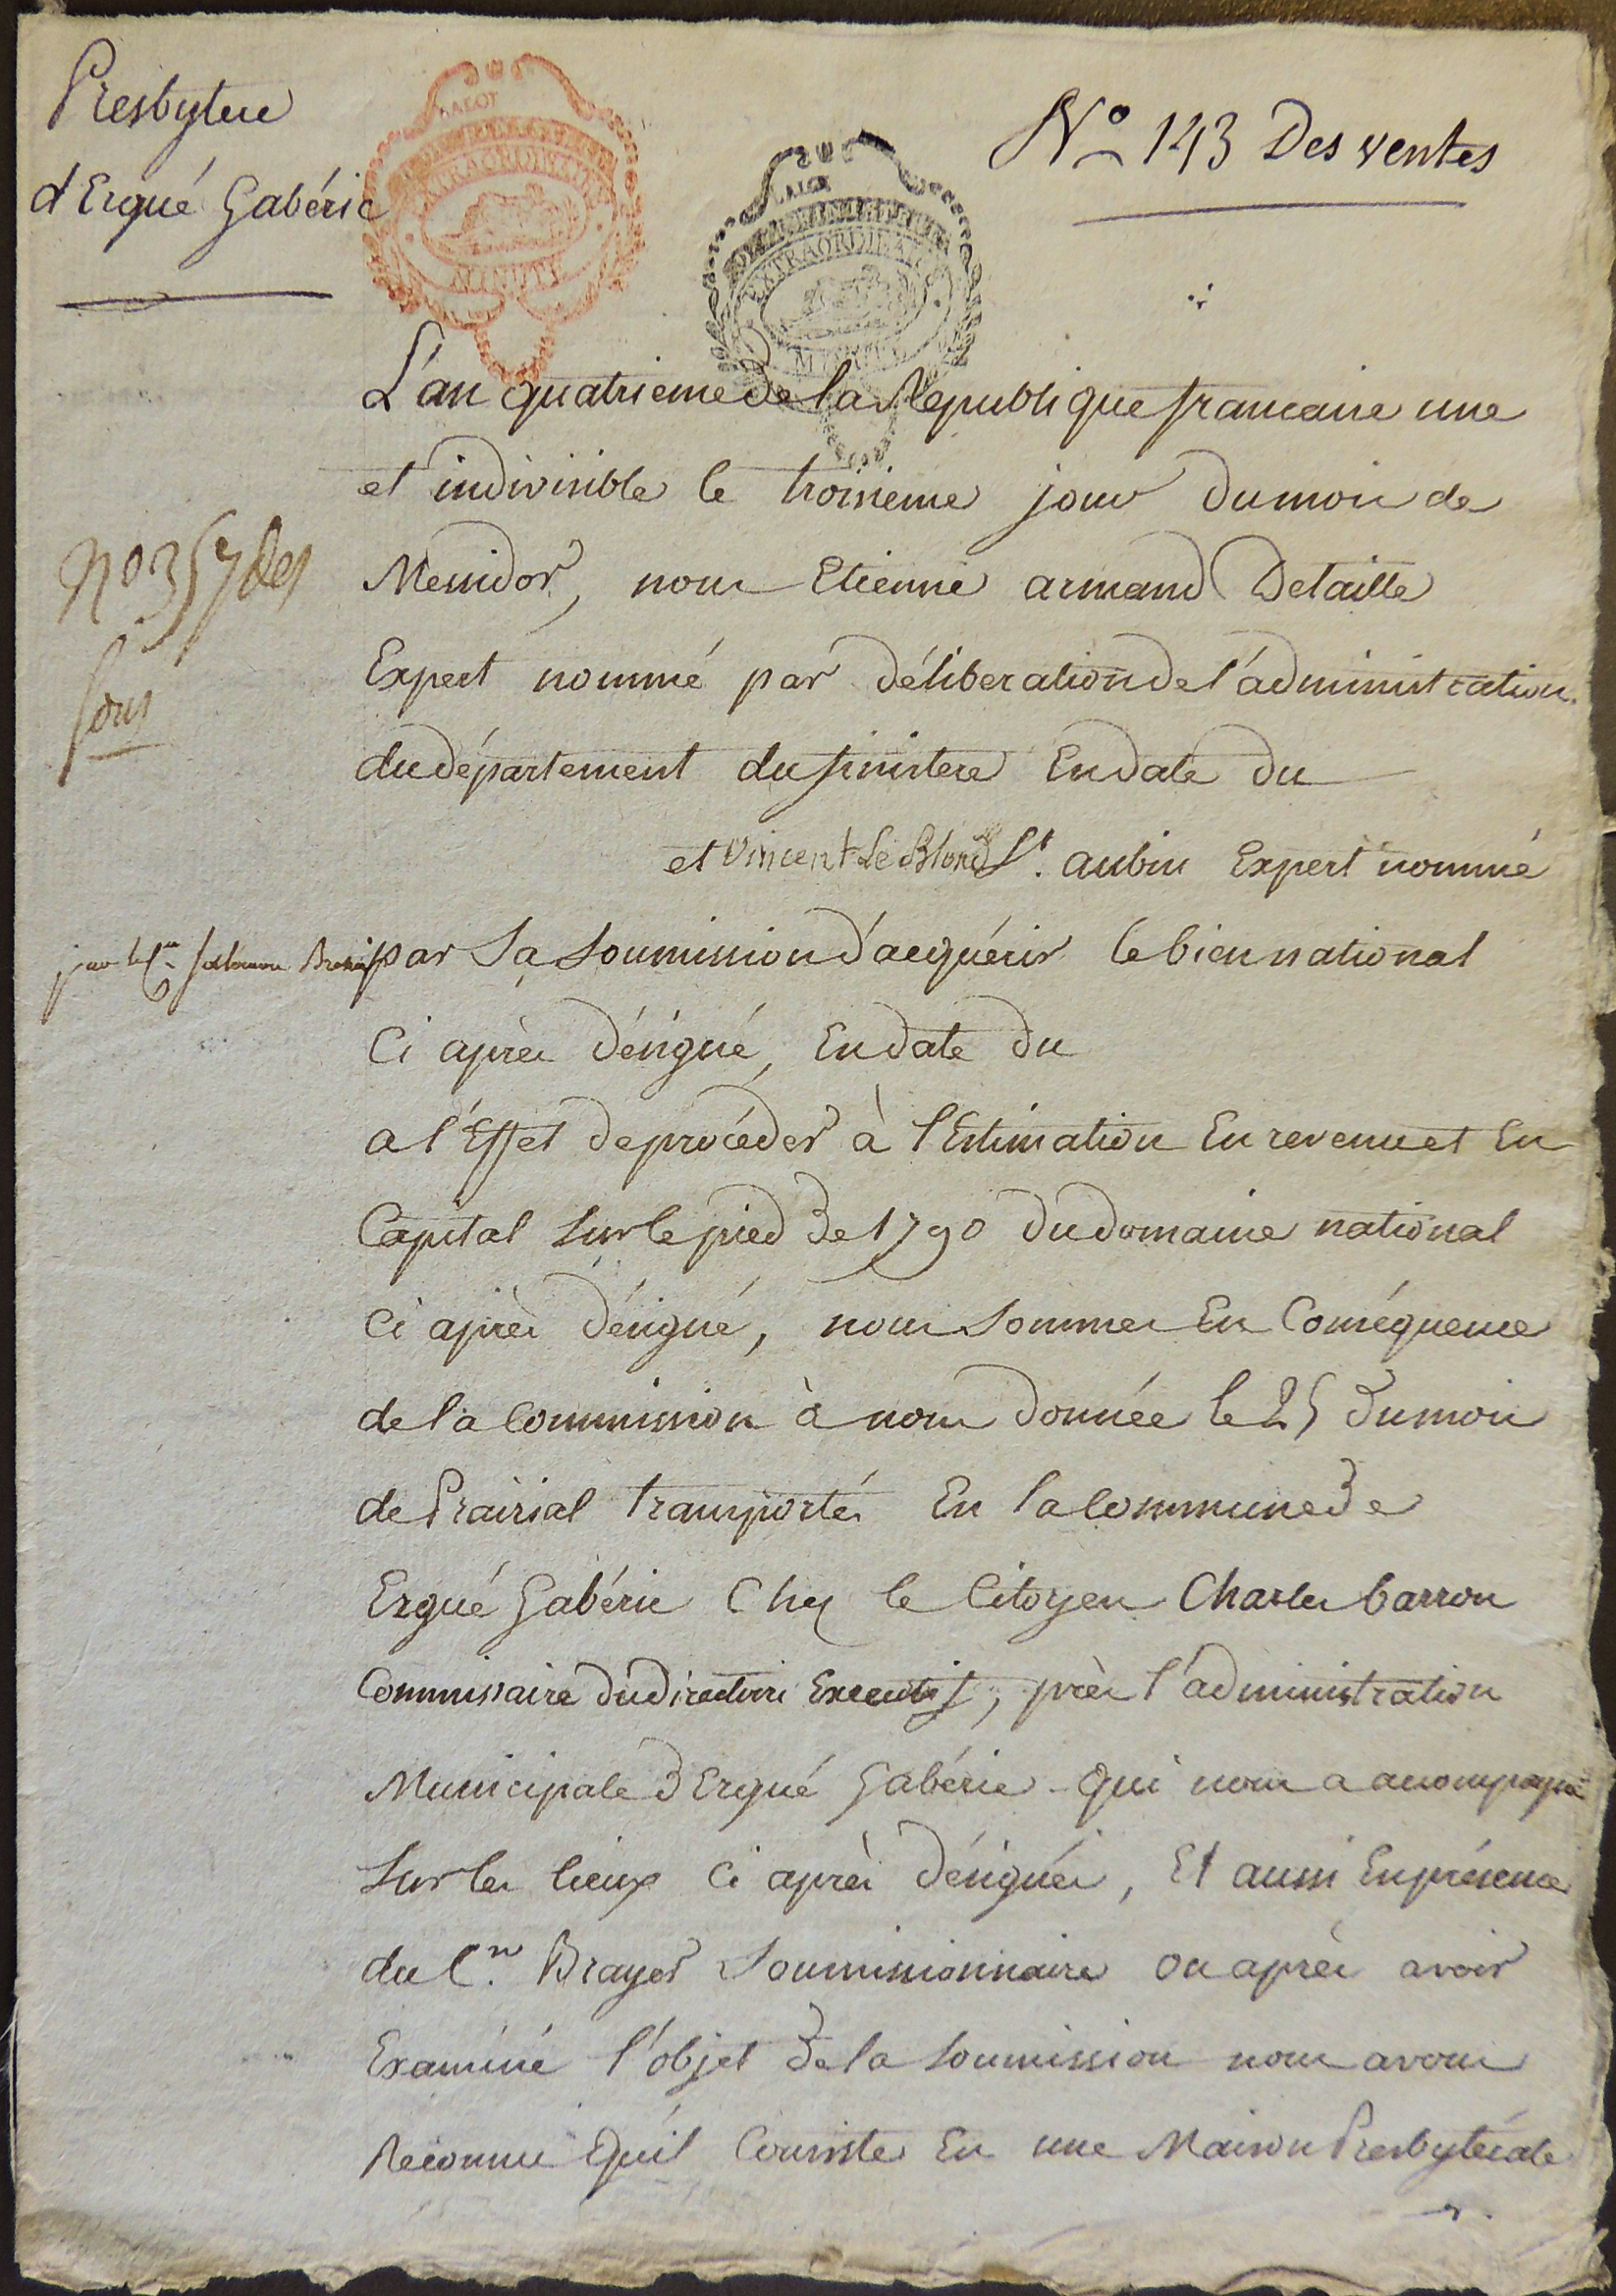 Presbytere
d'Ergué Gabéric
N° 143 Des ventes
LALOT
EXTRAORDINAIRE
MINUTE
LALOT
EXTRAORDINAIRE
MINUTE
L'an quatrieme de la Republique francaise une
et indivisible le troisieme jour du mois de
n° 357 des
sous
Messidor, nous Etienne armand Detaille
Expert nommé par déliberation de l'administration
du département du finistere En date du
et Vincent Le Blond St. aubin Expert nommé
par le Cn. Salomon
par Sa Soumission d'acquérir le bien national
Ci après désigné, En date du
a l'Effet de procéder à l'Estimation En revenu et En
Capital Sur le pied de 1790 du domaine national
Ci après désigné, nous Sommes En Conséquence
de la Commission à nous donnée le 25 du mois
de Prairial transportés En la Commune de
Ergué Gabéric Chez le Citoyen Charles barron
Commissaire du directoire Executif, près l'administration
Municipale d'Ergué Gabéric qui nous a accompagné
Sur les lieux Ci après désignés, Et aussi En présence
du Cn. Brayer Soumissionnaire ou après avoir
Examiné l'objet de la Soumission nous avons
Reconnu qu'il Consiste En une Maison Presbytérale